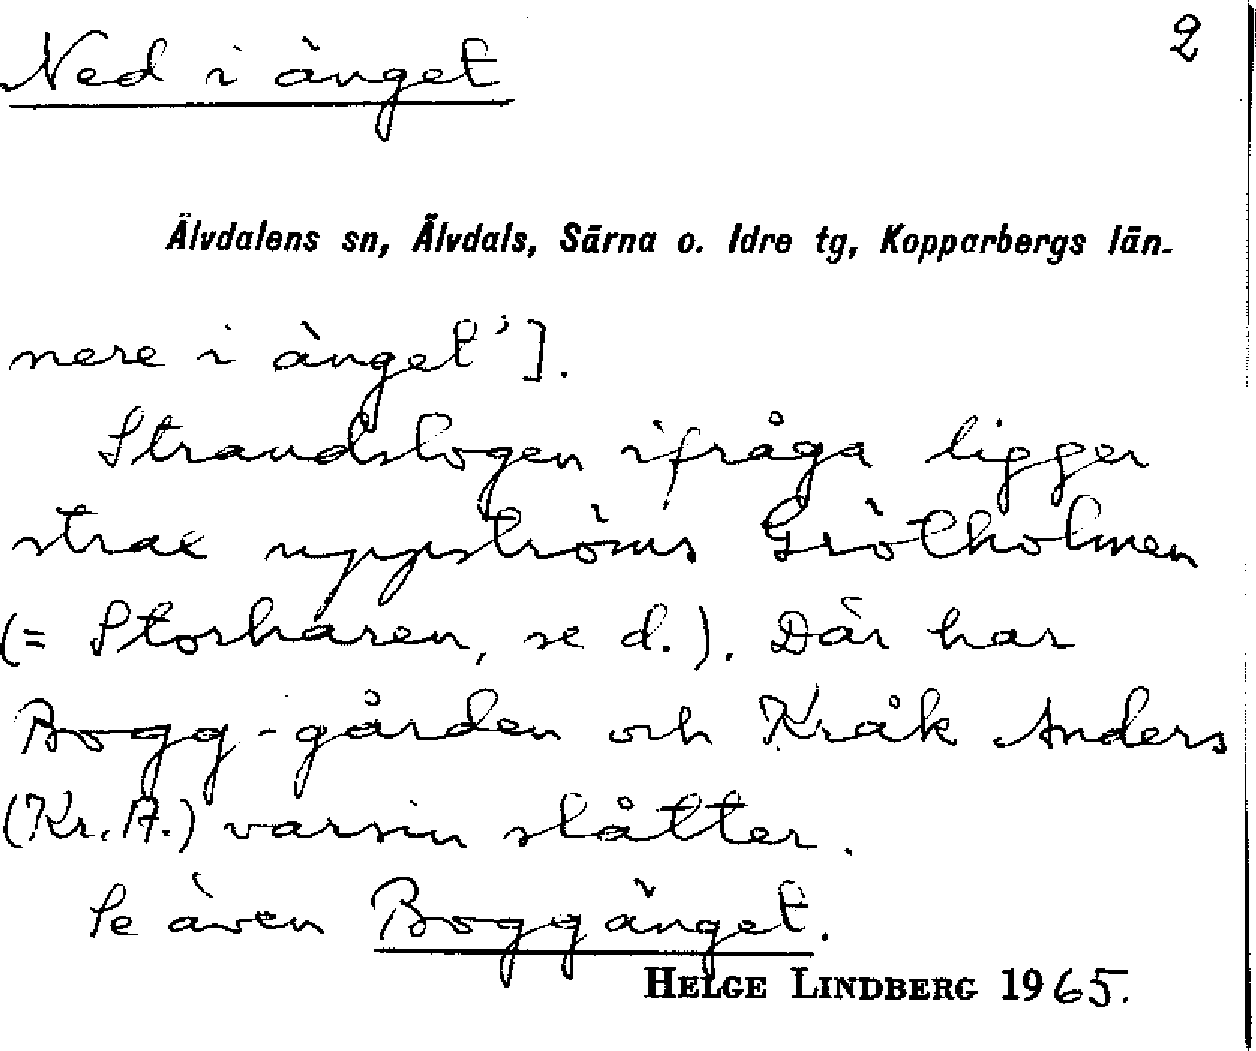 2
Ned i änget
Älvdalens sn, Älvdals, Särna o. Idre tg, Kopparbergs län.
nere i änget'].
Strandslogen ifråga ligger
strax uppströms Grötholmen
(= Storharen, se d.). Där har
Bogg-gården och Kråk Anders
(Kr. A.) varsin slåtter.
Se även Boggänget.
HELGE LINDBERG 1965.